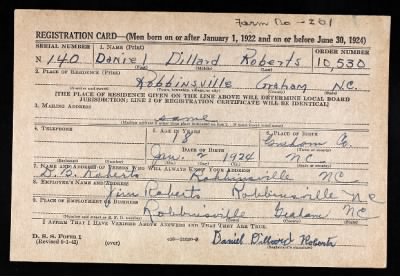 Farm No - 201
REGISTRATION CARD—(Men born on or after January 1, 1922 and on or before June 30, 1924)
SERIAL NUMBER 1. NAME (Print) ORDER NUMBER
N 140 Daniel Dillard Roberts 10,530
(First) (Middle) (Last)
2. PLACE OF RESIDENCE (Print)
Robbinsville Graham N.C.
[THE PLACE OF RESIDENCE GIVEN ON THE LINE ABOVE WILL DETERMINE LOCAL BOARD
JURISDICTION; LINE 2 OF REGISTRATION CERTIFICATE WILL BE IDENTICAL]
3. MAILING ADDRESS
same
4. TELEPHONE 5. AGE IN YEARS 6. PLACE OF BIRTH
18 Graham Co.
DATE OF BIRTH
Jan. 2 1924 N C
(Exchange) (Number) (Mo.) (Day) (Yr.)
7. NAME AND ADDRESS OF PERSON WHO WILL ALWAYS KNOW YOUR ADDRESS
D. B. Roberts Robbinsville N C
8. EMPLOYER'S NAME AND ADDRESS
Jim Roberts Robbinsville N C
9. PLACE OF EMPLOYMENT OR BUSINESS
Robbinsville Graham N C
I AFFIRM THAT I HAVE VERIFIED ABOVE ANSWERS AND THAT THEY ARE TRUE.
D. S. S. FORM 1
(Revised 6-1-42) (over) Daniel Dillard Roberts
(Registrant's signature)